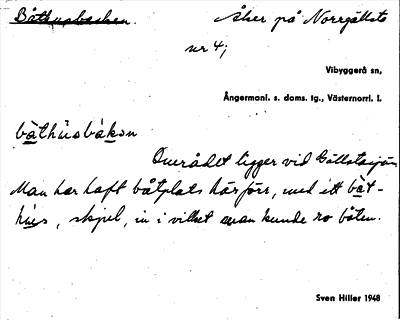 Båthusbacken.
Åker på Norrgällsta
nr 4;
Vibyggerå sn,
Ångermanl. s. doms. tg., Västernorrl. l.
båthùsbàkan
Området ligger vid Gällstasjön
Man har haft båtplats här förr, med ett båt-
hus, skjul, in i vilket man kunde ro båten.
Sven Hiller 1948